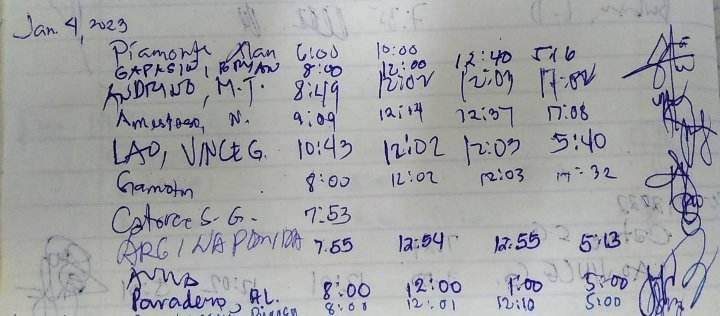 Jan. 4, 2023
Piamonte, Alan 6:00 10:00 12:40 5:16
GAPASIN, BRYAN 8:00 12:00
ANDRINO, M.T. 8:49 12:02 12:03 17:02
Amestoso, N. 9:09 12:14 12:37 17:08
LAO, VINCE G. 10:43 12:02 12:03 5:40
Gamotin 8:00 12:02 12:03 17:32
Catorce S. G. 7:53
7:55 12:54 12:55 5:13
Paradero, AL. 8:00 12:00 1:00 5:00
8:00 12:01 12:10 5:00